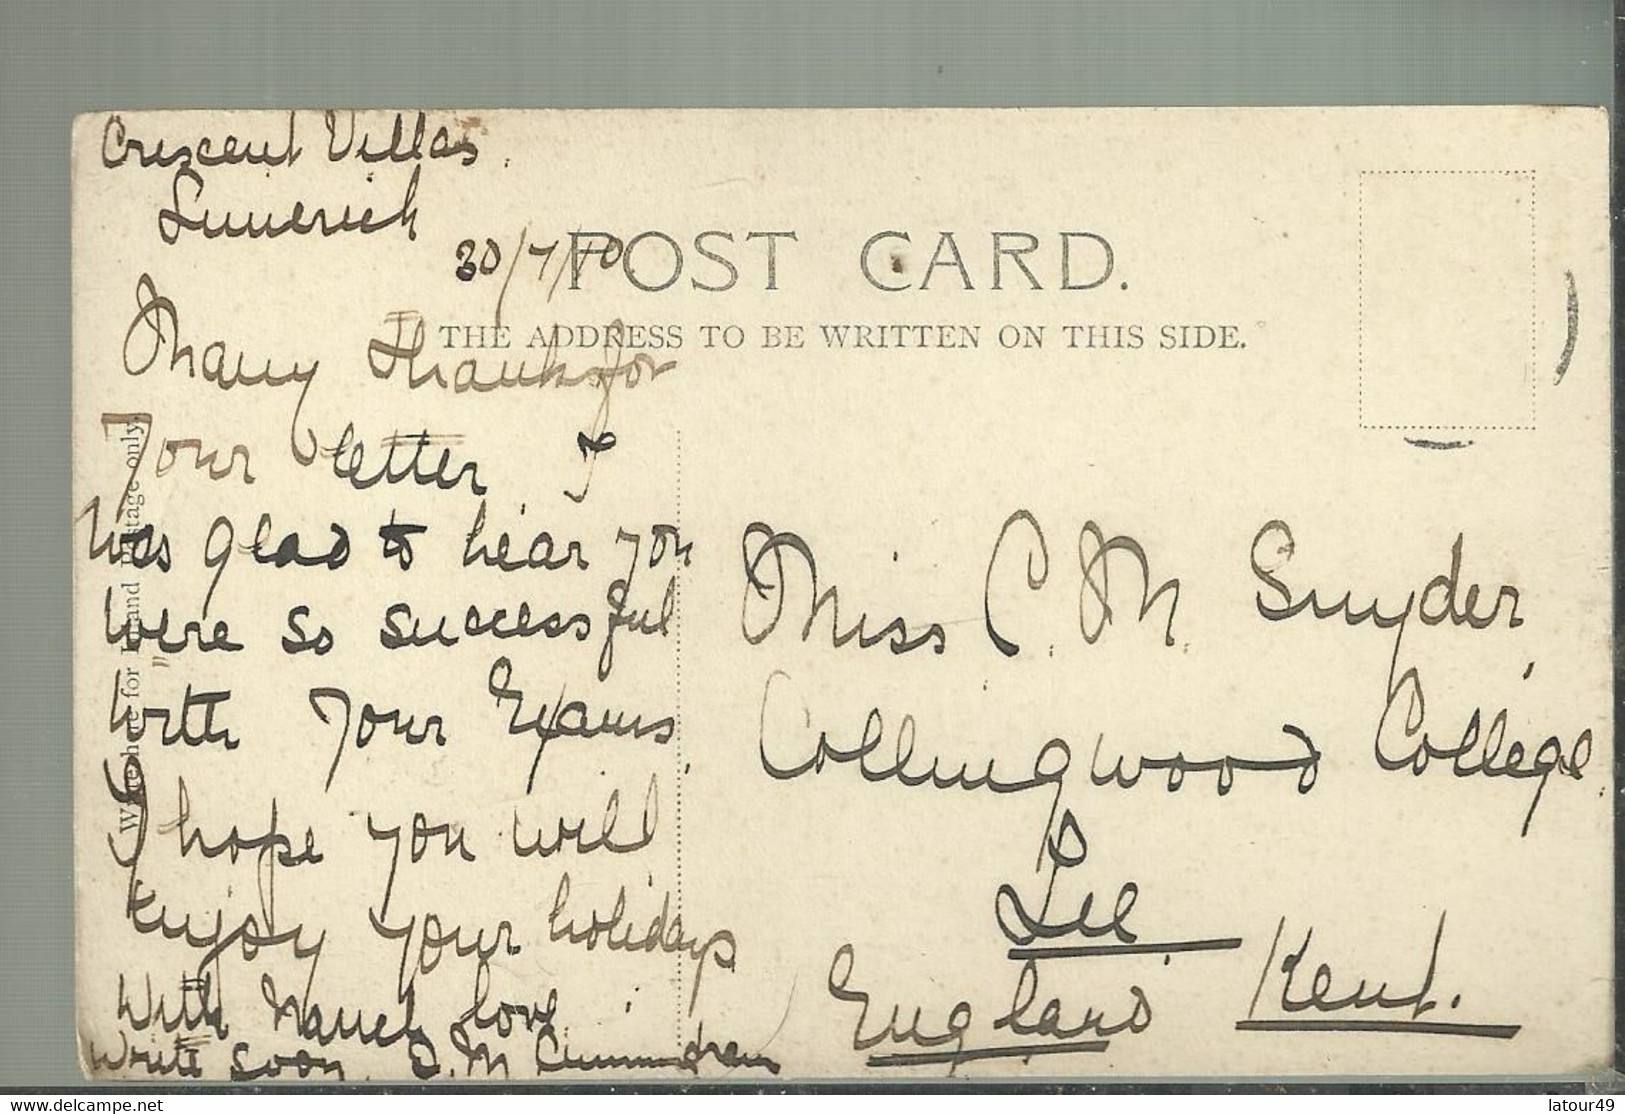 Crescent Villas.
Limerick
30/7/10
POST CARD.
THE ADDRESS TO BE WRITTEN ON THIS SIDE.
Many Thanks for
Your letter I
was glad to hear you
were so successful
with your Exams.
I hope you will
Enjoy your holidays
With love.
Write soon. M
Miss C. M. Snyder,
Collingwood College.
Lee
Kent.
England
www.delcampe.net
latour49